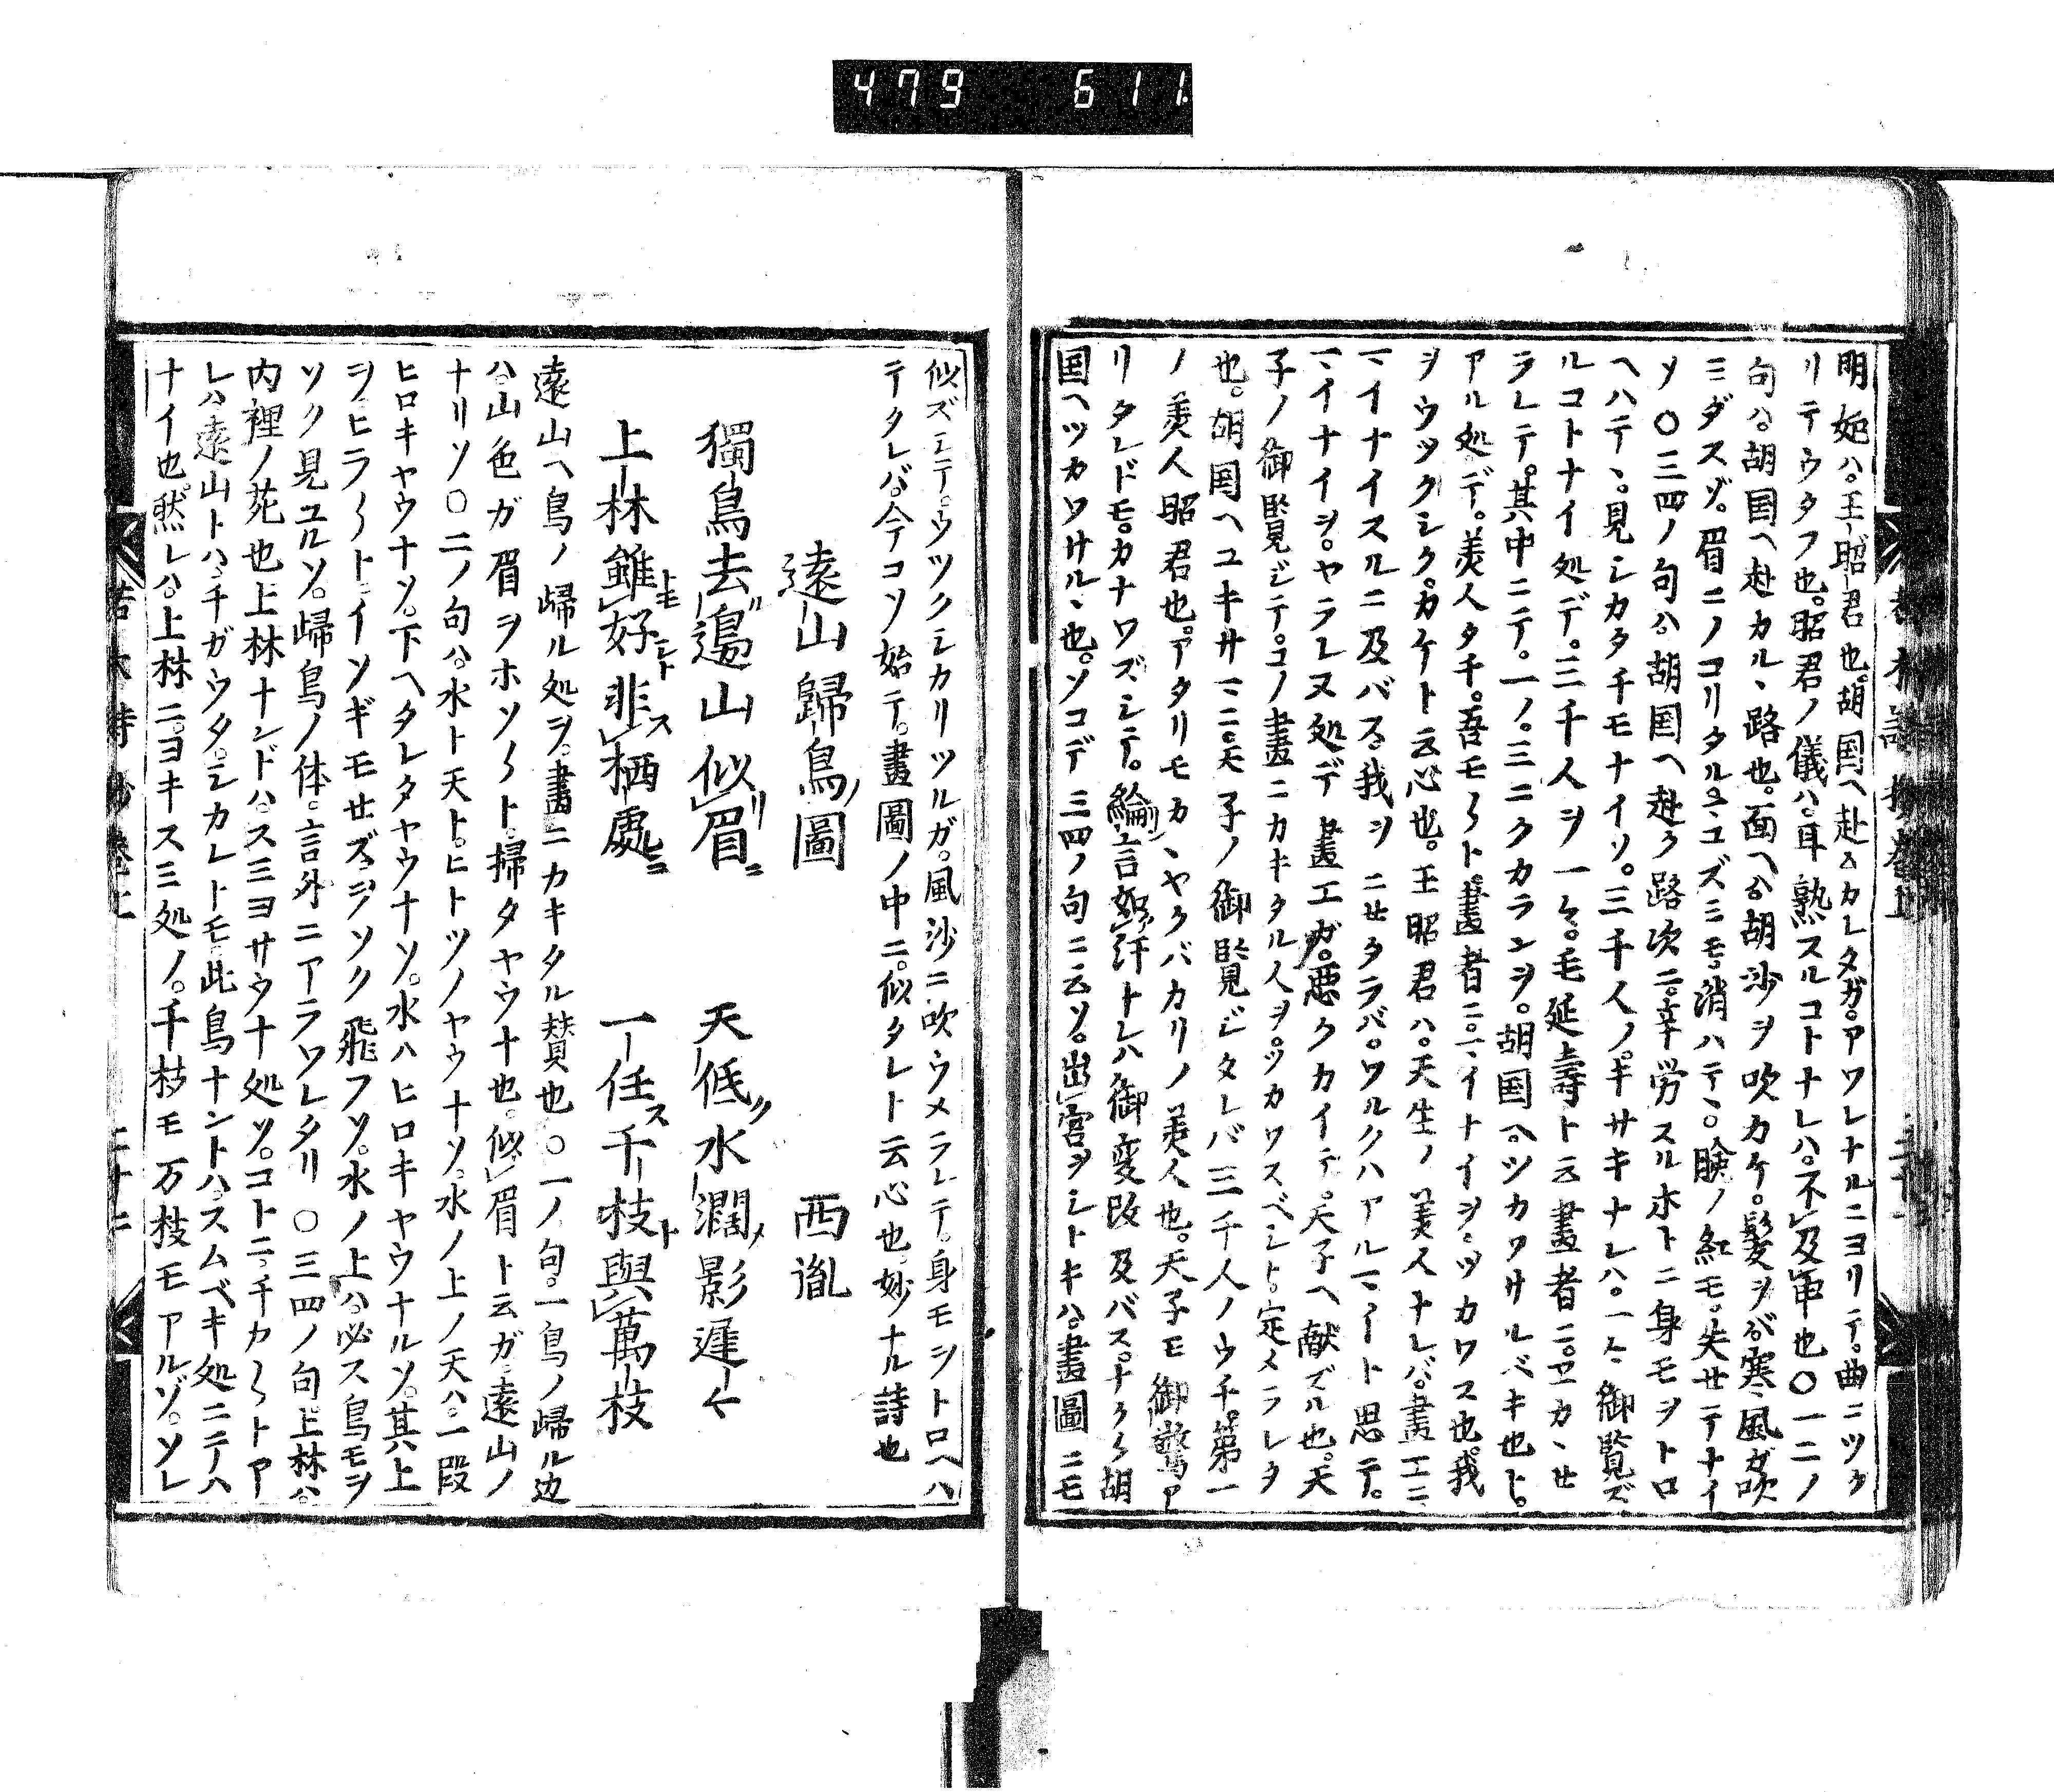 479 611
明妃ハ。王昭君也。胡国ヘ赴カレタガ。アワレナルニヨリテ。曲ニツク
リテウタフ也。昭君ノ儀ハ。耳熟スルコトナレハ。不及申也〇一二ノ
句ハ。胡国ヘ赴カルヽ路也。面ヘハ。胡沙ヲ吹カケ。髪ヲバ。寒風ガ吹
ミダスゾ。眉ニノコリタルマユズミモ。消ハテヽ。瞼ノ紅モ。失セテナイ
ソ〇三四ノ句ハ。胡国ヘ赴ク路次ニ。辛労スルホトニ身モヲトロ
ヘハテヽ。見シカタチモナイソ。三千人ノ。キサキナレハ。一々御覧ズ
ルコトナイ処デ。三千人ヲ一々。毛延壽ト云畫者ニ。ヱカヽセ
ラレテ。其中ニテ。一ノ。ミニクカランヲ。胡国ヘ。ツカワサルベキ也ト。
アル処デ。美人タチ。吾モ〱ト。畫者ニ。マイナイヲ。ツカワス也。我
ヲウツクシク。カケト云心也。王昭君ハ。天生ノ美人ナレバ。畫工ニ
マイナイスルニ及バス。我ヲニセタラバ。ワルクハアルマイト思テ。
マイナイヲ。ヤラレヌ処デ畫工ガ。悪クカイテ。天子ヘ献ズル也。天
子ノ御覧ジテ。コノ畫ニカキタル人ヲ。ツカワスベシト。定メラレタ
也。胡国ヘユキサマニ。天子ノ御覧ジタレバ三千人ノウチ。第一
ノ美人昭君也。アタリモカヽヤクバカリノ美人也。天子モ御驚ア
リタレドモ。カナワズシテ。綸言如汗トレハ御変改及バス。ナク〱胡
国ヘツカワサルヽ也。ソコデ三四ノ句ニ云ソ。出宮ヲシトキハ。畫圖ニモ
似ズシテ。ウツクシカリツルガ。風沙ニ吹ウメラレテ。身モヲトロヘハ
テタレバ。今コソ始テ。畫圖ノ中ニ。似タレト云心也。妙ナル詩也
遠山歸鳥圖 西胤
獨鳥去邉山似眉 天低水濶影遲〱
上林雖好非栖處 一任千枝與萬枝
遠山ヘ鳥ノ歸ル処ヲ。畫ニカキタル賛也〇一ノ句。一鳥ノ歸ル辺
ハ。山色ガ眉ヲホソ〱ト。掃タヤウナ也。似眉ト云ガ。遠山ノ
ナリソ〇二ノ句ハ。水ト天ト。ヒトツノヤウナソ。水ノ上ノ天ハ。一段
ヒロキヤウナソ。下ヘタレタヤウナソ。水ハヒロキヤウナルソ。其上
ヲ。ヒラ〱ト。イソギモセズ。ヲソク飛フソ。水ノ上ハ。必ス鳥モヲ
ソク見ユルソ。歸鳥ノ体。言外ニアラワレタリ〇三四ノ句。上林ハ。
内裡ノ苑也上林ナンドハ。スミヨサウナ処ソ。コトニ。チカ〱トア
レハ遠山トハ。チガウタ。シカレトモ。此鳥ナントハ。スムベキ処ニテハ
ナイ也。然レハ。上林ニ。ヨキスミ処ノ。千枝モ万枝モアルゾ。ソレ